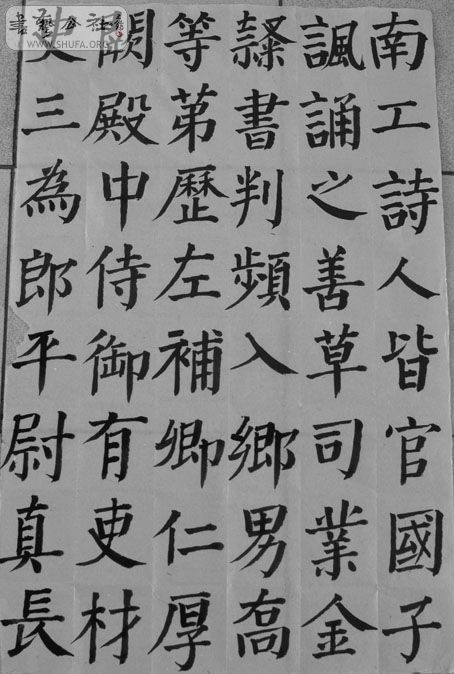 南工詩人皆官國子
諷誦之善草司業金
隸書判頻入鄉男喬
等苐歷左補卿仁厚
闕殿中侍御有吏材
史三為郎平尉真長
書藝公社
WWW.SHUFA.ORG